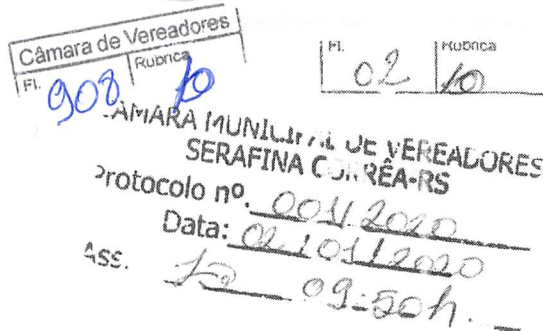 Câmara de Vereadores
Fl. 908 Rubrica
Fl. 02 Rubrica
CÂMARA MUNICIPAL DE VEREADORES
SERAFINA CORRÊA-RS
Protocolo nº. 001/2020
Data: 02/01/2020
Ass. 09:50h.